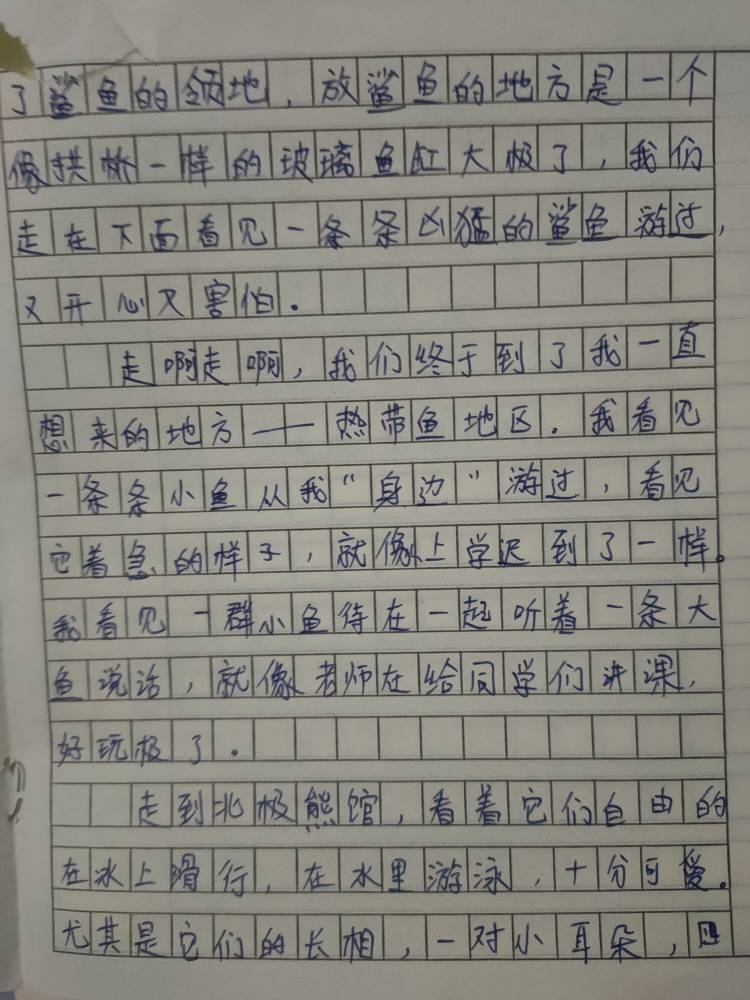 了鲨鱼的领地，放鲨鱼的地方是一个
像拱桥一样的玻璃鱼缸大极了，我们
走在下面看见一条条凶猛的鲨鱼游过，
又开心又害怕.
走啊走啊，我们终于到了我一直
想来的地方——热带鱼地区.我看见
一条条小鱼从我“身边”游过，看见
它着急的样子，就像上学迟到了一样。
我看见一群小鱼待在一起听着一条大
鱼说话，就像老师在给同学们讲课，
好玩极了。
走到北极熊馆，看着它们自由的
在冰上滑行，在水里游泳，十分可爱。
尤其是它们的长相，一对小耳朵，四